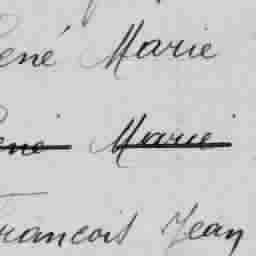 René Marie
René Marie
François Jean